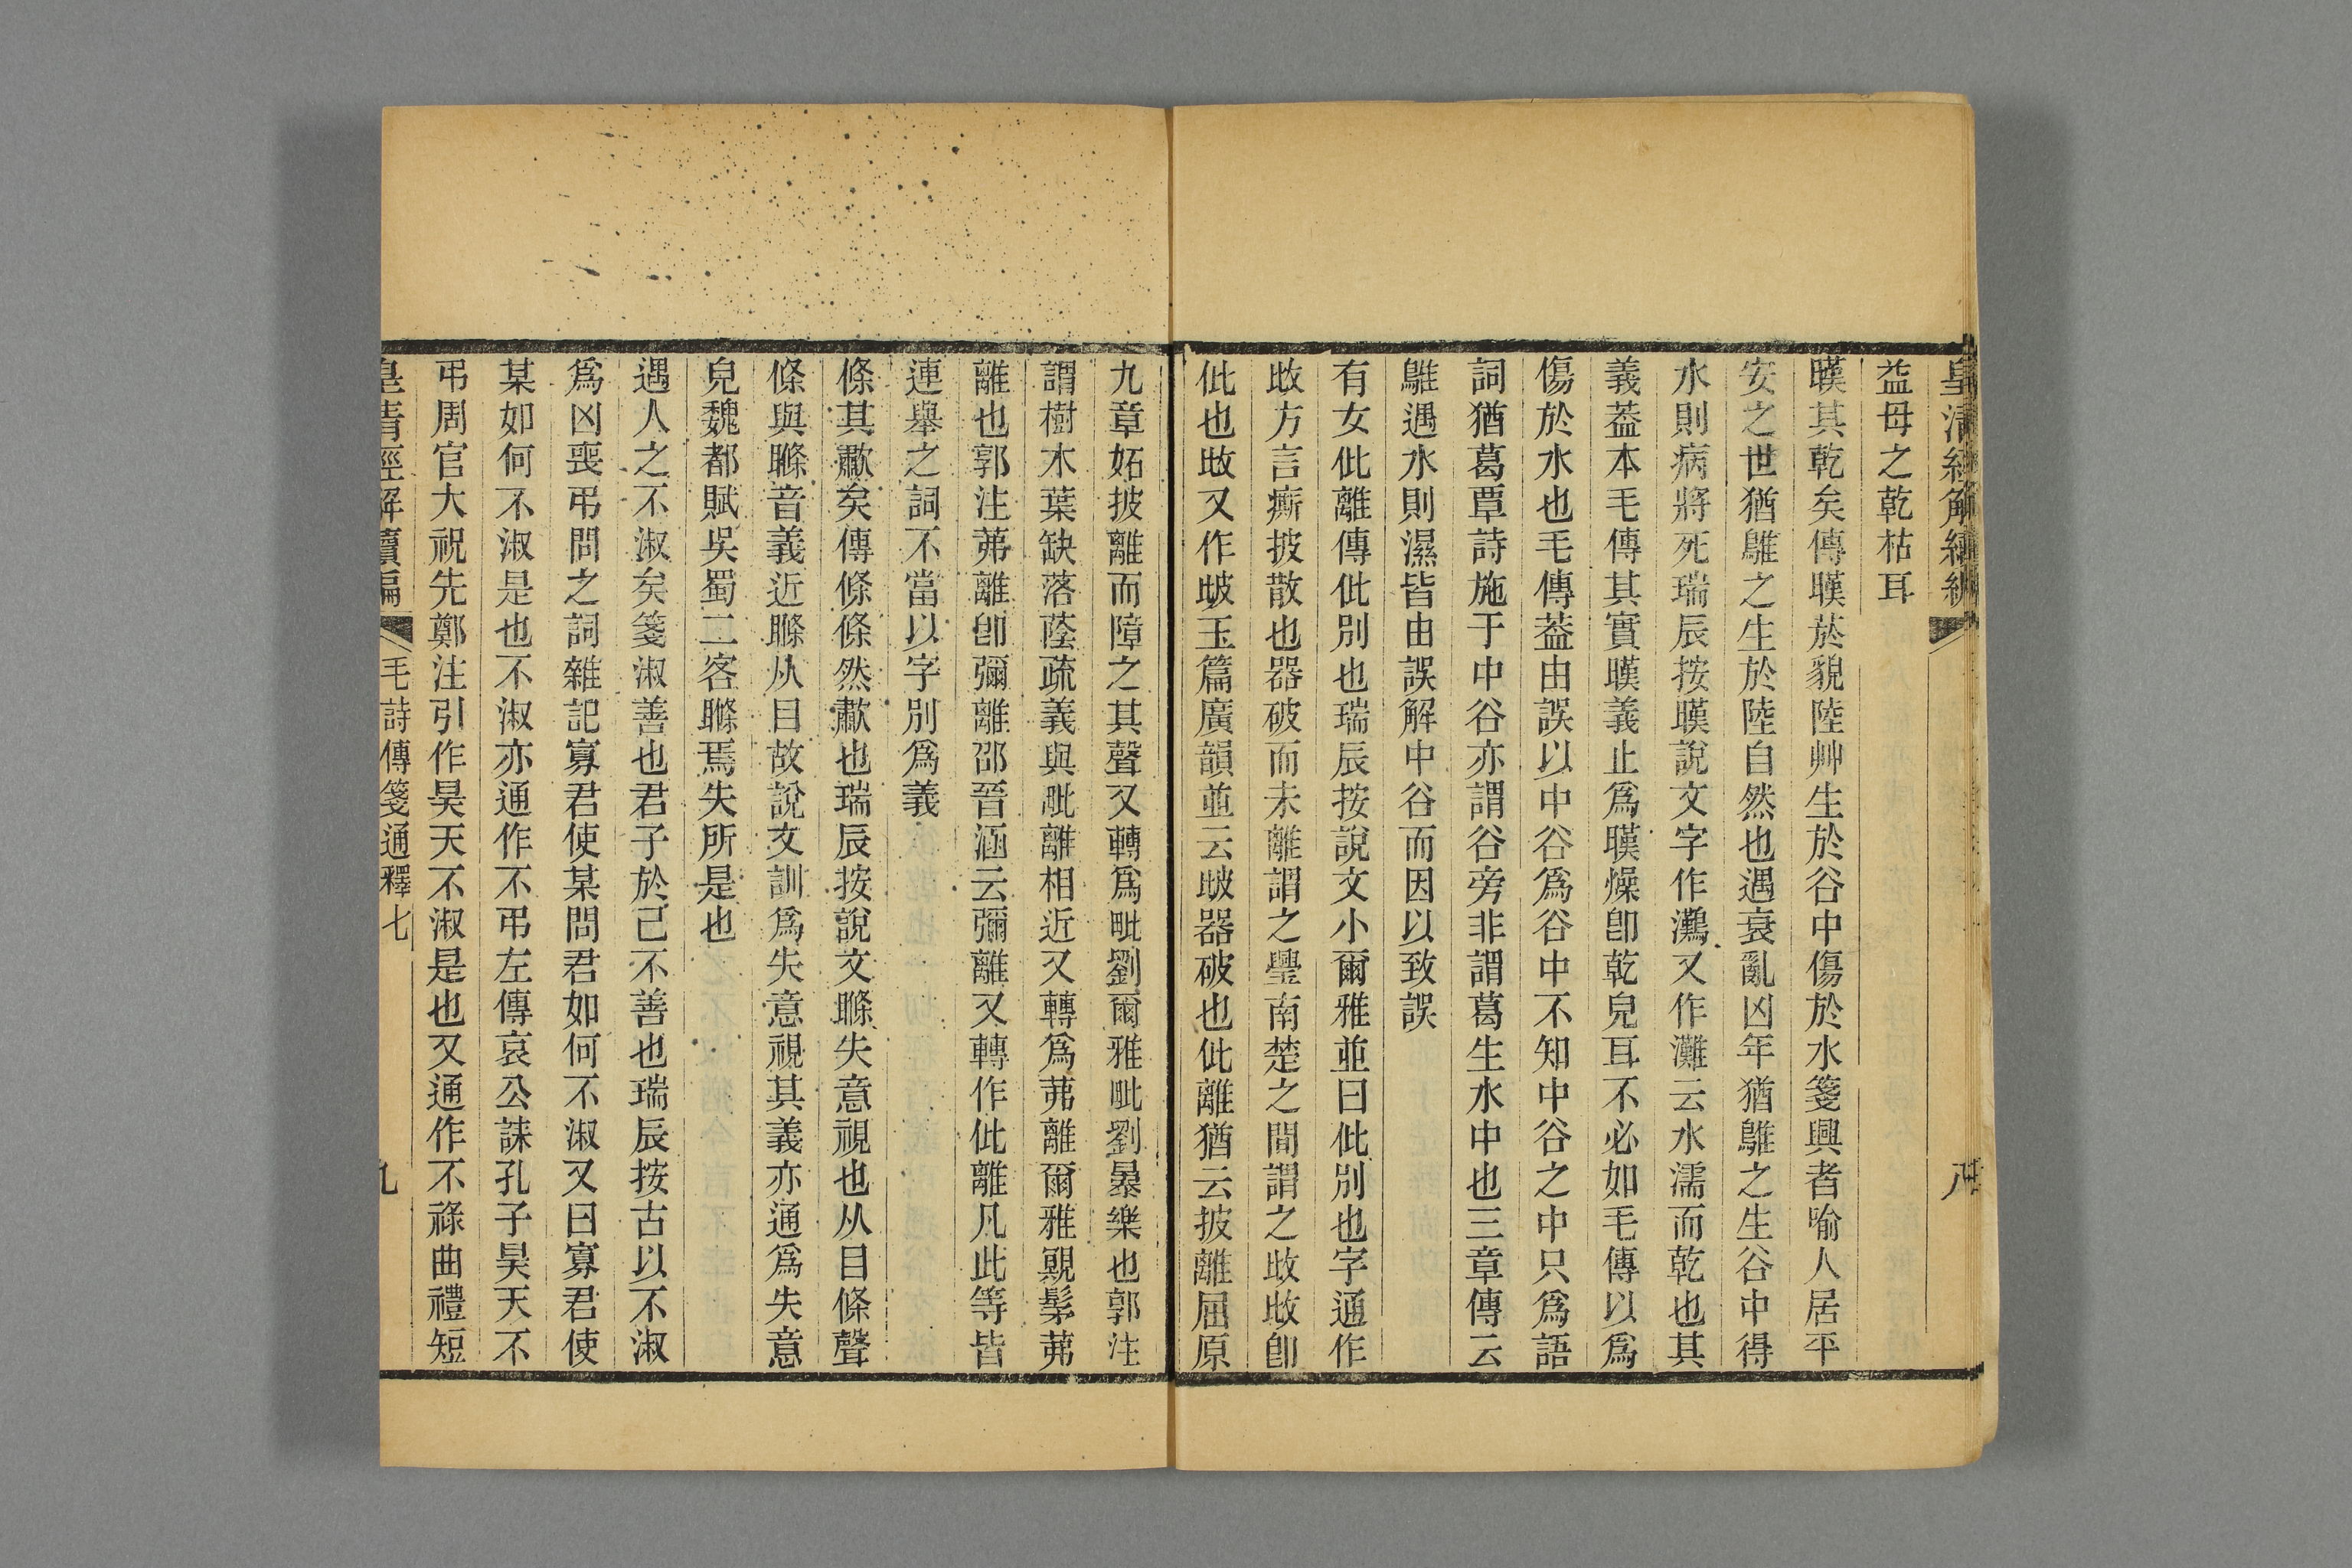 皇清經解續編
八
益母之乾枯耳
暵其乾矣傳暵菸貌陸艸生於谷中傷於水箋興者喻人居平
安之世猶鵻之生於陸自然也遇衰亂凶年猶鵻之生谷中得
水則病將死瑞辰按暵說文字作灘又作灘云水濡而乾也其
義葢本毛傳其實暵義止爲暵燥卽乾皃耳不必如毛傳以爲
傷於水也毛傳葢由誤以中谷爲谷中不知中谷之中只爲語
詞猶葛覃詩施于中谷亦謂谷旁非謂葛生水中也三章傳云
鵻遇水則濕皆由誤解中谷而因以致誤
有女仳離傳仳別也瑞辰按說文小爾雅並曰仳別也字通作
㪏方言㾷披散也器破而未離謂之璺南楚之間謂之㪏㪏卽
仳也㪏又作㱟玉篇廣韻並云㱟器破也仳離猶云披離屈原
九章妬披離而障之其聲又轉爲毗劉爾雅毗劉暴樂也郭注
謂樹木葉缺落蔭疏義與毗離相近又轉爲茀離爾雅覭髳茀
離也郭注茀離卽彌離邵晉涵云彌離又轉作仳離凡此等皆
連舉之詞不當以字別爲義
條其歗矣傳條條然歗也瑞辰按說文䐺失意視也从目條聲
條與䐺音義近䐺从目故說文訓爲失意視其義亦通爲失意
皃魏都賦吳蜀二客䐺焉失所是也
遇人之不淑矣箋淑善也君子於己不善也瑞辰按古以不淑
爲凶喪弔問之詞雜記寡君使某問君如何不淑又曰寡君使
某如何不淑是也不淑亦通作不弔左傳哀公誄孔子昊天不
弔周官大祝先鄭注引作昊天不淑是也又通作不祿曲禮短
皇清經解續編
毛詩傳箋通釋七
九